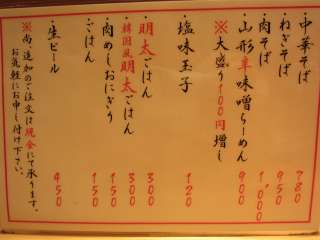 ・中華そば 780
・ねぎそば 950
・肉そば 1,000
・山形辛味噌らーめん 900
※大盛り100円増し
・塩味玉子 120
・明太ごはん 300
・韓国風明太ごはん 300
・肉めしおにぎり 150
・ごはん 150
・生ビール 450
※尚、追加のご注文は現金にて承ります。
お気軽にお申し付け下さい。